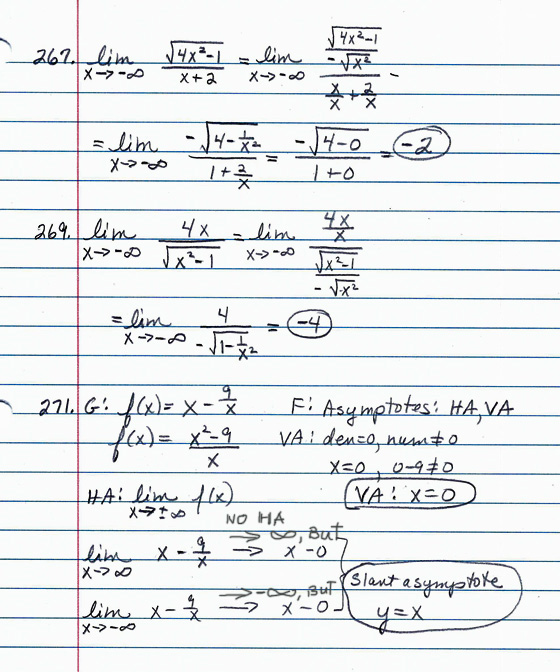 267. lim x→-∞ √(4x²-1) / (x+2) = lim x→-∞ (√(4x²-1) / -√x²) / (x/x + 2/x) -
= lim x→-∞ -√(4 - 1/x²) / (1 + 2/x) = -√(4-0) / (1+0) = -2
269. lim x→-∞ 4x / √(x²-1) = lim x→-∞ (4x/x) / (√(x²-1) / -√x²)
= lim x→-∞ 4 / -√(1 - 1/x²) = -4
271. G: f(x) = x - 9/x F: Asymptotes: HA, VA
f(x) = (x²-9) / x VA: den=0, num≠0
x=0, 0-9≠0
HA: lim x→±∞ f(x) VA: x=0
NO HA
lim x→∞ x - 9/x → x-0 → ∞, But
lim x→-∞ x - 9/x → x-0 → -∞, But
Slant asymptote
y=x